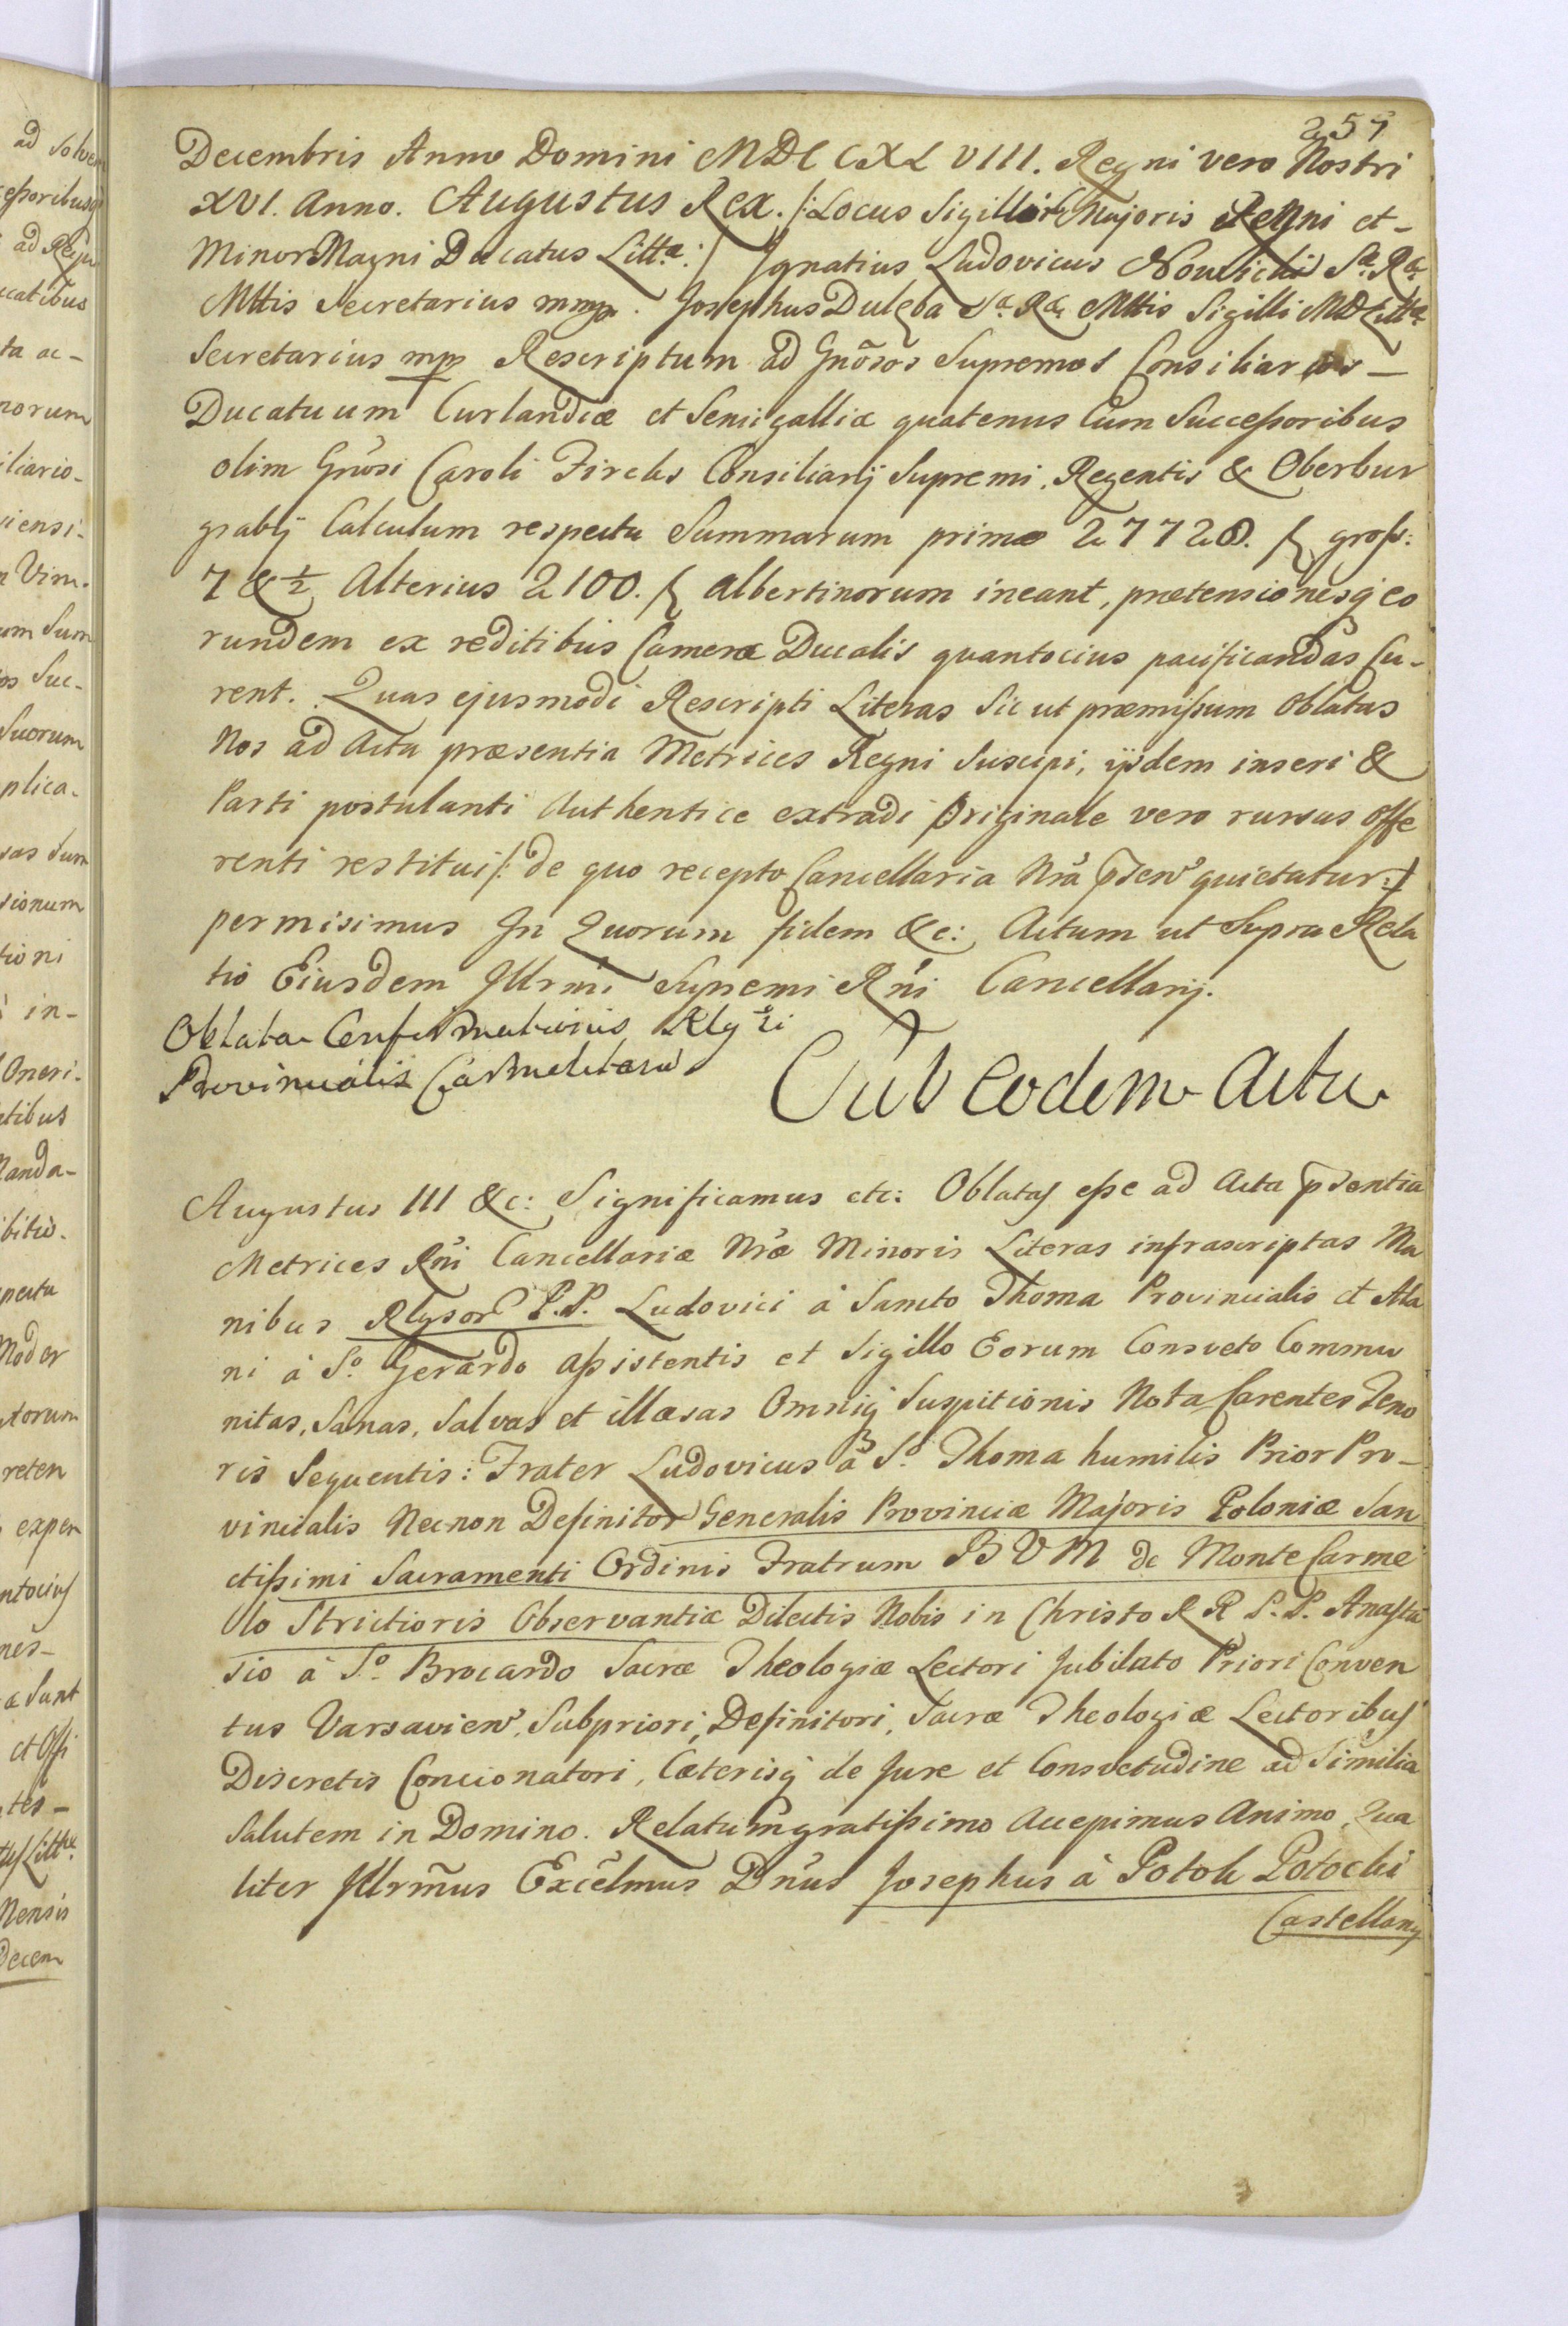 257
Decembris Anno Domini MDCCXLVIII. Regni vero Nostri
XVI. Anno. Augustus Rex. /: Locus Sigilli Majoris Regni et -
Minor Magni Ducatus Litt.æ :/ Ignatius Ludovicus Nowicki S.æ R.æ
Mttis Secretarius mmp. Josephus Dulęba S.æ R.æ Mttis Sigilli MD Litt.æ
Secretarius mp Rescriptum ad Gnōsos Supremos Consiliarios -
Ducatuum Curlandiæ et Semigalliæ quatenus Cum Successoribus
olim Gnosi Caroli Fircks Consiliarij Supremi, Regentis & Oberbur
grabij Calculum respectu Summarum primæ 27728. f. gross:
7 & ½ Alterius 2100. f. albertinorum ineant, prætensionesq eo
rundem ex reditibus Cameræ Ducalis quantocius pacificandas Cu-
rent. Quas ejusmodi Rescripti Literas Sic ut præmissum Oblatas
Nos ad Acta præsentia Metrices Regni Suscipi, ijsdem inseri &
Parti postulanti Authentice extradi Originale vero rursus Offe
renti restitui /: de quo recepto Cancellaria Nra psen quietatur :/
permisimus In Quorum fidem &c: Actum ut Supra Rela
tio Eiusdem Illrmi Supremi Rni Cancellarij.
Oblata Confirmationis Rlgsi
Provincialis Carmelitaru
Sub Eodem Actu
Augustus III &c: Significamus etc: Oblatas esse ad Acta psentia
Metrices Rni Cancellariæ Nræ Minoris Literas infrascriptas Ma
nibus Rlgsor P.P. Ludovici à Sancto Thoma Provincialis et Ala
ni à S.o Gerardo assistentis et Sigillo Eorum Consveto Commu
nitas, Sanas, Salvas et illæsas Omniq Suspitionis Nota Carentes Teno
ris Sequentis: Frater Ludovicus à S.o Thoma humilis Prior Pro-
vincialis Necnon Definitor Generalis Provinciæ Majoris Poloniæ San
ctissimi Sacramenti Ordinis Fratrum BVM de Monte Carme
lo Strictioris Observantiæ Dilectis Nobis in Christo RR P.P. Anasta
sio à S.o Brocardo Sacræ Theologiæ Lectori Jubilato Priori Conven
tus Varsavien, Subpriori, Definitori, Sacræ Theologiæ Lectoribus
Discretis Concionatori, Cæterisq de Jure et Consvetudine ad Similia
Salutem in Domino. Relatum gratissimo Accepimus Animo, Qua
liter Illrm̃us Excel̃mus Dñus Josephus à Potok Potocki
Castellany